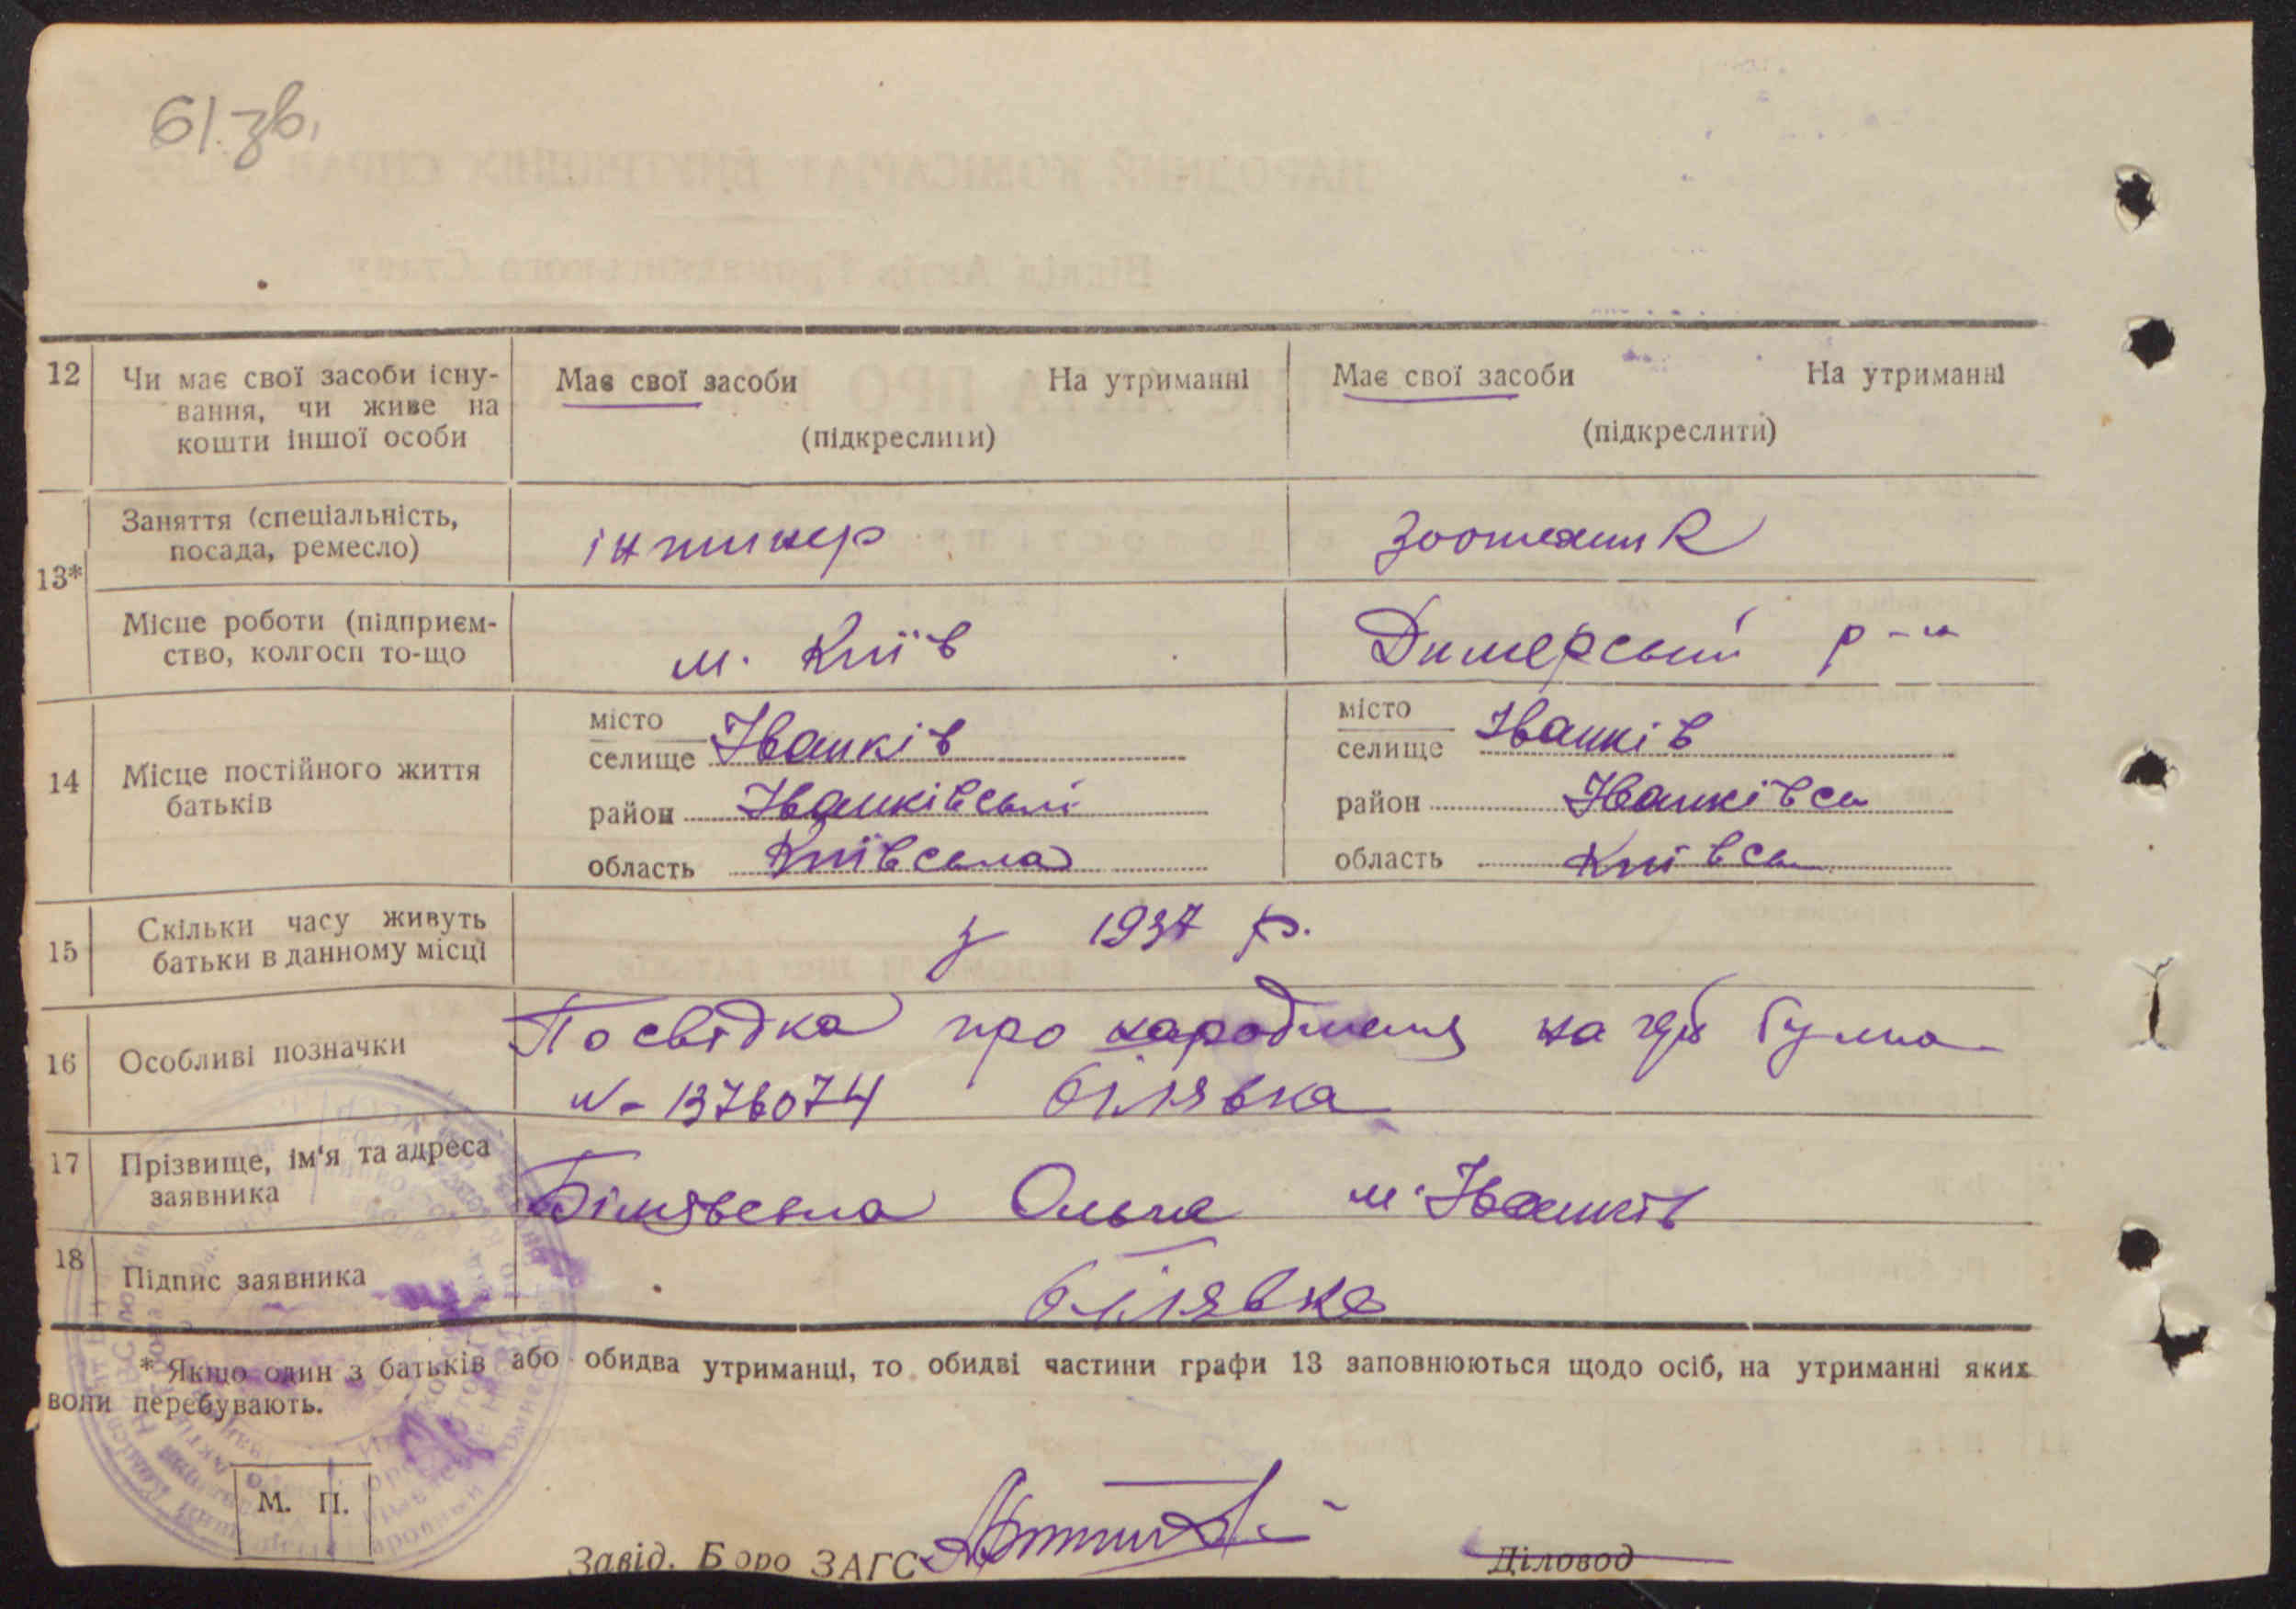 61.зв.
12 Чи має свої засоби існу-
вання, чи живе на
кошти іншої особи
Має свої засоби На утриманні
(підкреслити)
Має свої засоби На утриманні
(підкреслити)
13*
Заняття (спеціальність,
посада, ремесло)
інжинер
зоотехник
Місце роботи (підприєм-
ство, колгосп то-що
м. Київ
Димерський р-н
14 Місце постійного життя
батьків
місто
селище Іванків
район Іванківськ
область Київська
місто
селище Іванків
район Іванківсь
область Київсь
15 Скільки часу живуть
батьки в данному місці
з 1937 р.
16 Особливі позначки
Посвідка про народження на
№ 1376074 білявка
17 Прізвище, ім'я та адреса
заявника
Білявська Ольга м. Іванків
18 Підпис заявника
білявка
* Якщо один з батьків або обидва утриманці, то обидві частини графи 13 заповнюються щодо осіб, на утриманні яких
вони перебувають.
М. П.
Завід. Бюро ЗАГС
Діловод